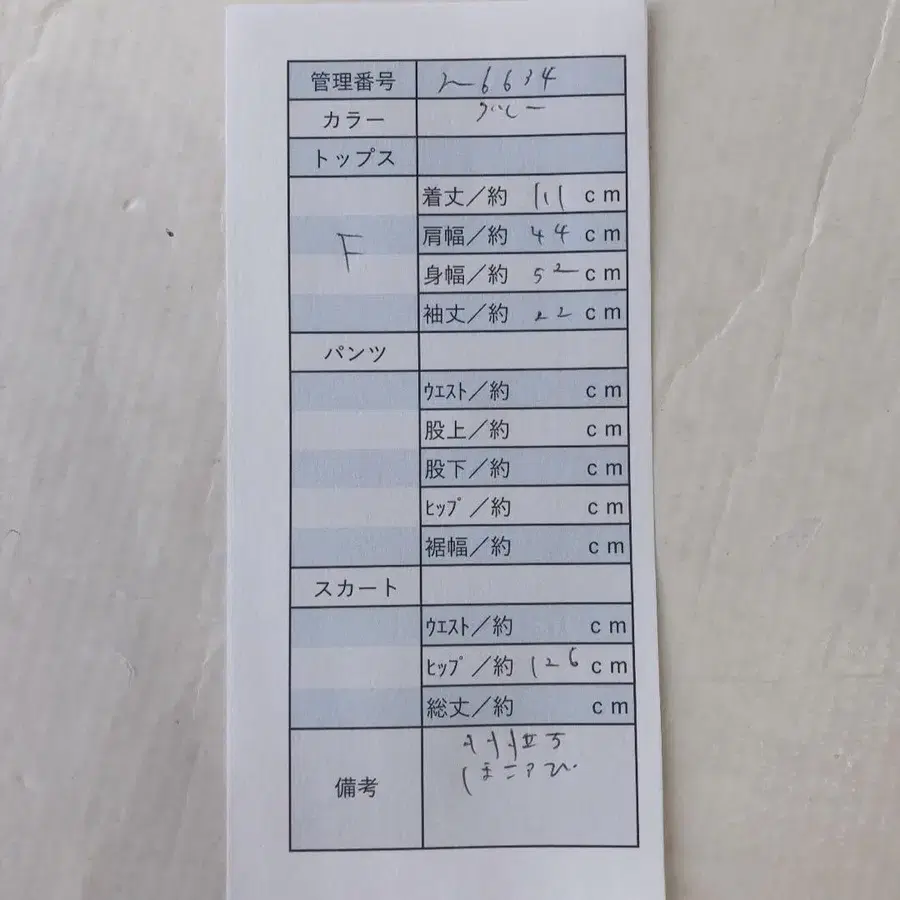 管理番号 2-6634
カラー グレー
トップス
F
着丈／約 111 cm
肩幅／約 44 cm
身幅／約 52 cm
袖丈／約 22 cm
パンツ
ウエスト／約 cm
股上／約 cm
股下／約 cm
ヒップ／約 cm
裾幅／約 cm
スカート
ウエスト／約 cm
ヒップ／約 126 cm
総丈／約 cm
備考